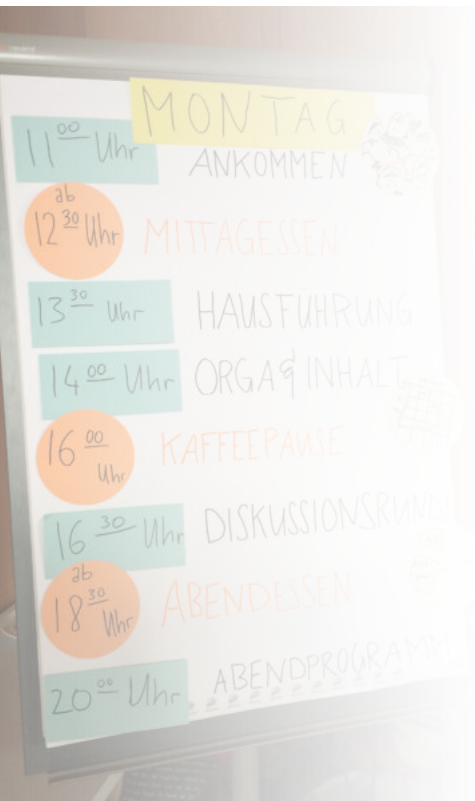 MONTAG
11⁰⁰ Uhr ANKOMMEN
ab
12³⁰ Uhr MITTAGESSEN
13³⁰ Uhr HAUSFÜHRUNG
14⁰⁰ Uhr ORGA & INHALT
16⁰⁰ Uhr KAFFEEPAUSE
16³⁰ Uhr DISKUSSIONSRUNDE
ab
18³⁰ Uhr ABENDESSEN
20⁰⁰ Uhr ABENDPROGRAMM